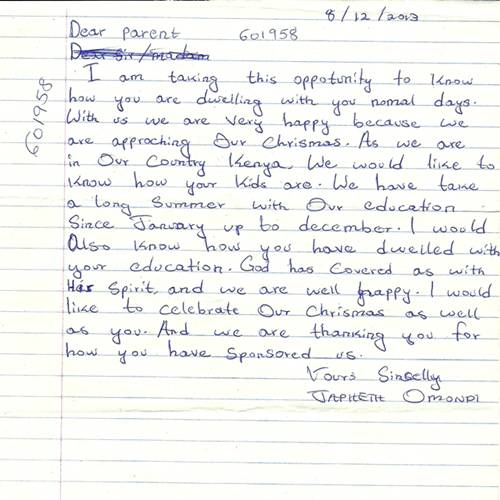 8/12/2013
Dear parent 601958
Dear Sir/Madam
601958
I am taking this oppotunity to know
how you are dwelling with you nomal days.
With us we are very happy because we
are approching Our Chrismas. As we are
in Our Country Kenya, We would like to
know how your kids are. We have take
a long Summer with Our education
Since January up to december. I would
Also know how you have dwelled with
your education. God has Covered as with
His Spirit, and we are well happy. I would
like to celebrate Our Chrismas as well
as you. And we are thanking you for
how you have Sponsored us.
Yours Sincelly
JAPHETH OMONDI